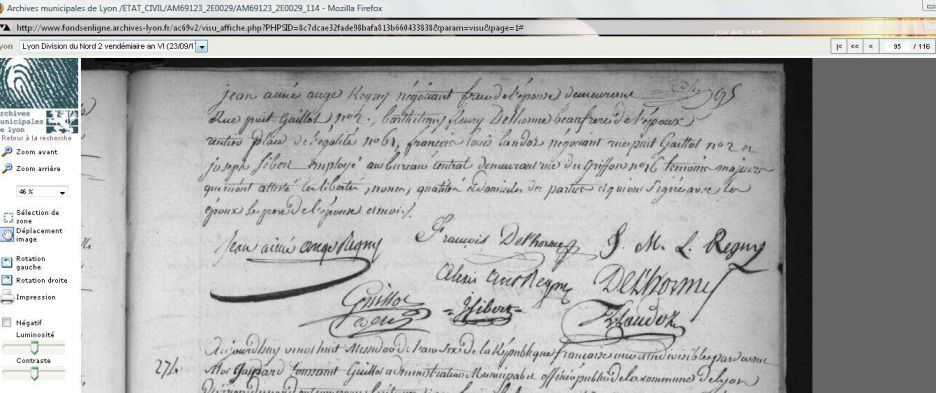 Archives municipales de Lyon /ETAT_CIVIL/AM69123_2E0029/AM69123_2E0029_114 - Mozilla Firefox
http://www.fondsenligne.archives-lyon.fr/ac69v2/visu_affiche.php?PHPSID=8c7dcae32fade98bafa813b660433838&param=visu&page=1#
yon
Lyon Division du Nord 2 vendémiaire an VI (23/09/1
|< << < 95 / 116
archives
municipales
de lyon
Retour à la recherche
Zoom avant
Zoom arrière
46 %
Sélection de
zone
Déplacement
image
Rotation
gauche
Rotation droite
Impression
Négatif
Luminosité
Contraste
95
jean aimé ange Regny négociant frere de l'épouse demeurant
Rue puit Gaillot no 2., barthelemy fleury Delhorme beaufrere de l'époux
rentier place de l'égalité no 61, françois louis Landoz négociant rue puit Gaillot no 2 et
joseph Jibert employé au bureau central demeurant rue du Griffon no 16 temoins majeurs
qui m'ont attesté les liberté, noms, qualités et domiciles des parties et qui ont signé avec les
époux le pere de l'épouse et moi.
Jean aimé ange Regny
François Delhorme
J. M. L. Regny
Alexis anne Regny
Delhorme
Guillot
Jibert
Landoz
271.
Aujourdhuy vingt huit Messidor de l'an six de la République française une et indivisible par devant
Moi Gaspard Toussaint Guillot administrateur Municipal et officié public de la commune de Lyon